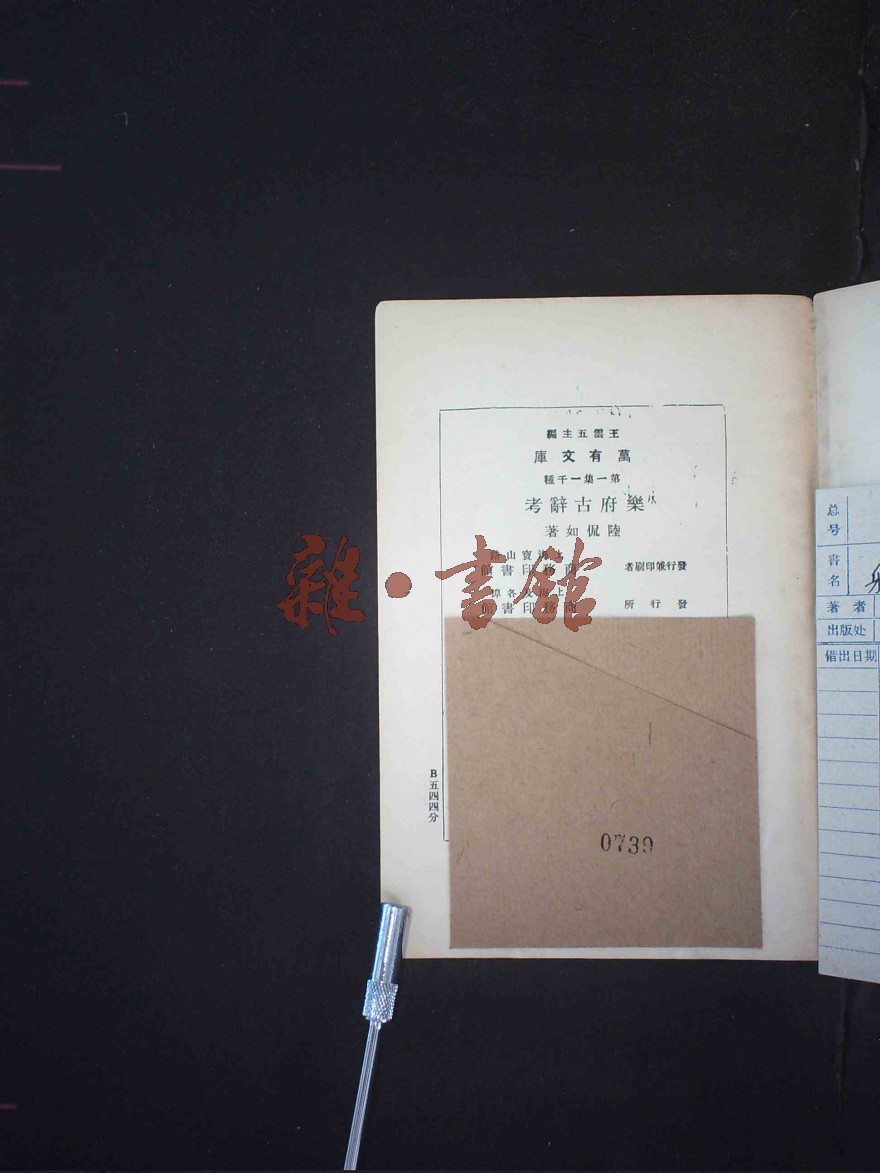 王雲五主編
萬有文庫
第一集一千種
樂府古辭考
陸侃如著
上海寶山路
發行兼印刷者 商務印書館
上海及各埠
發行所 商務印書館
B五四四分
0739
雜·書館
总号
書名
著者
出版处
借出日期